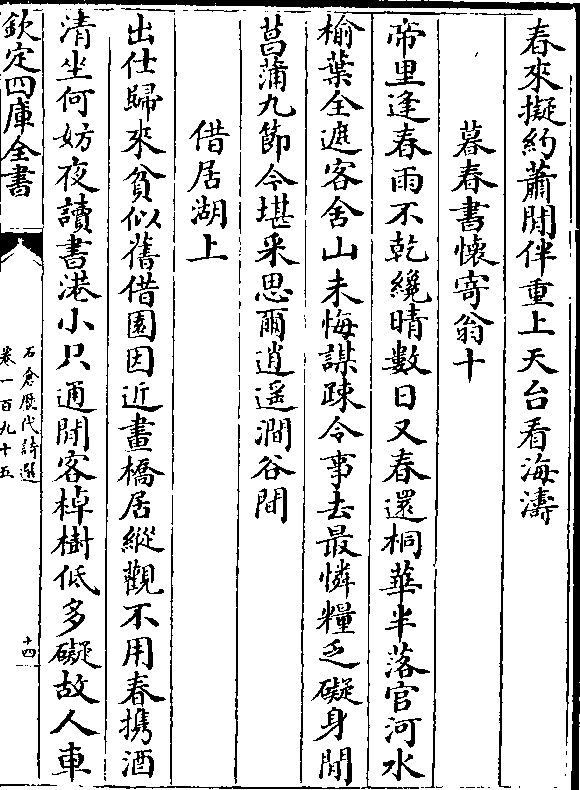 春來擬約蕭閒伴重上天台看海濤
暮春書懷寄翁十
帝里逢春雨不乾纔晴數日又春還桐華半落官河水
榆葉全遮客舍山未悔謀疎令事去最憐糧乏礙身閒
菖蒲九節今堪采思爾逍遥澗谷間
借居湖上
出仕歸來貧似舊借園因近畫橋居縱觀不用春携酒
清坐何妨夜讀書港小只通閒客棹樹低多礙故人車
欽定四庫全書
石倉歷代詩選
卷一百九十五
十四